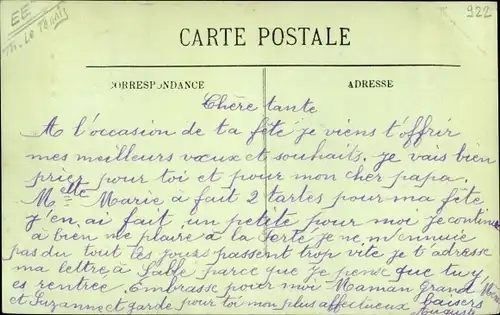 EE
Th. Le Tennis
922
CARTE POSTALE
CORRESPONDANCE
ADRESSE
Chère tante
A l'occasion de ta fête je viens t'offrir
mes meilleurs vœux et souhaits, je vais bien
prier pour toi et pour mon cher papa.
Melle Marie a fait 2 tartes pour ma fête
j'en ai fait un petite pour moi je continue
à bien me plaire à la Ferté je ne m'ennuie
pas du tout les jours passent trop vite je t adresse
ma lettre à Sablé parce que je pense que tu y
es rentrée Embrasse pour moi Maman Grand Mère
et Suzanne et garde pour toi mon plus affectueux baisers
Auguste